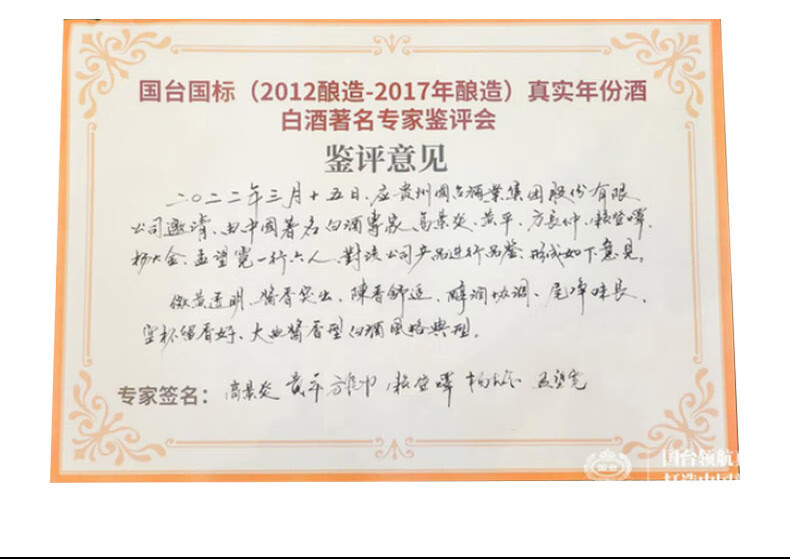 国台国标（2012酿造-2017年酿造）真实年份酒
白酒著名专家鉴评会
鉴评意见
二〇二二年三月十五日，应贵州国台酒業集团股份有限
公司邀请，由中國著名白酒專家，高景炎、黄平、方長仲、賴登燡、
杨大金、孟望霓一行六人，對该公司产品进行品鉴，形成如下意見。
微黄透明、醬香突出、陳香舒适、醇润协调、尾净味長、
空杯留香好、大曲醬香型白酒風格典型。
专家签名：高景炎 黄平 方長仲 賴登燡 杨大金 孟望霓
国台
国台领航